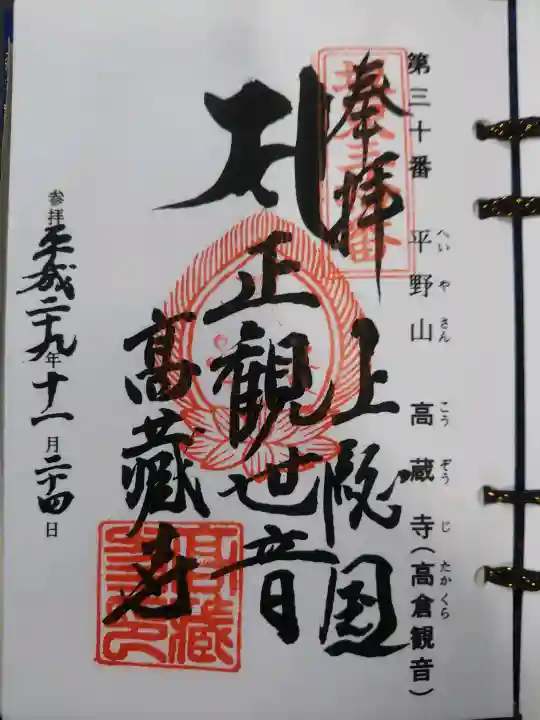 第三十番 平野山 高蔵寺(高倉観音)
へいやさん こうぞうじ たかくら
奉拝
上総国
正観世音
高蔵寺
参拝 平成二十九年十一月二十四日